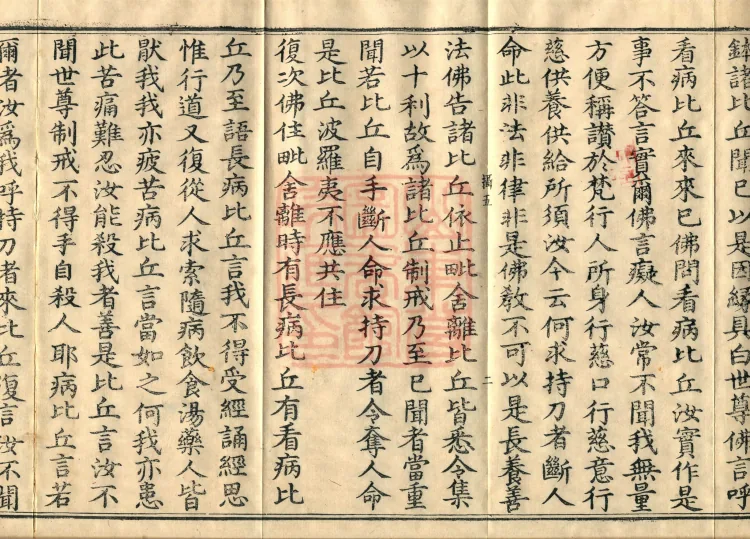 鉢諸比丘聞已以是因緣具白世尊佛言呼
看病比丘來來已佛問看病比丘汝實作是
事不答言實爾佛言癡人汝常不聞我無量
方便稱讃於梵行人所身行慈口行慈意行
慈供養供給所須汝今云何求持刀者斷人
命此非法非律非是佛敎不可以是長養善
五 二
法佛告諸比丘依止毗舍離比丘皆悉令集
以十利故爲諸比丘制戒乃至已聞者當重
聞若比丘自手斷人命求持刀者令奪人命
是比丘波羅夷不應共住
復次佛住毗舍離時有長病比丘有看病比
丘乃至語長病比丘言我不得受經誦經思
惟行道又復從人求索隨病飲食湯藥人皆
猒我我亦疲苦病比丘言當如之何我亦患
此苦痛難忍汝能殺我者善是比丘言汝不
聞世尊制戒不得手自殺人耶病比丘言若
爾者汝爲我呼持刀者來比丘復言汝不聞